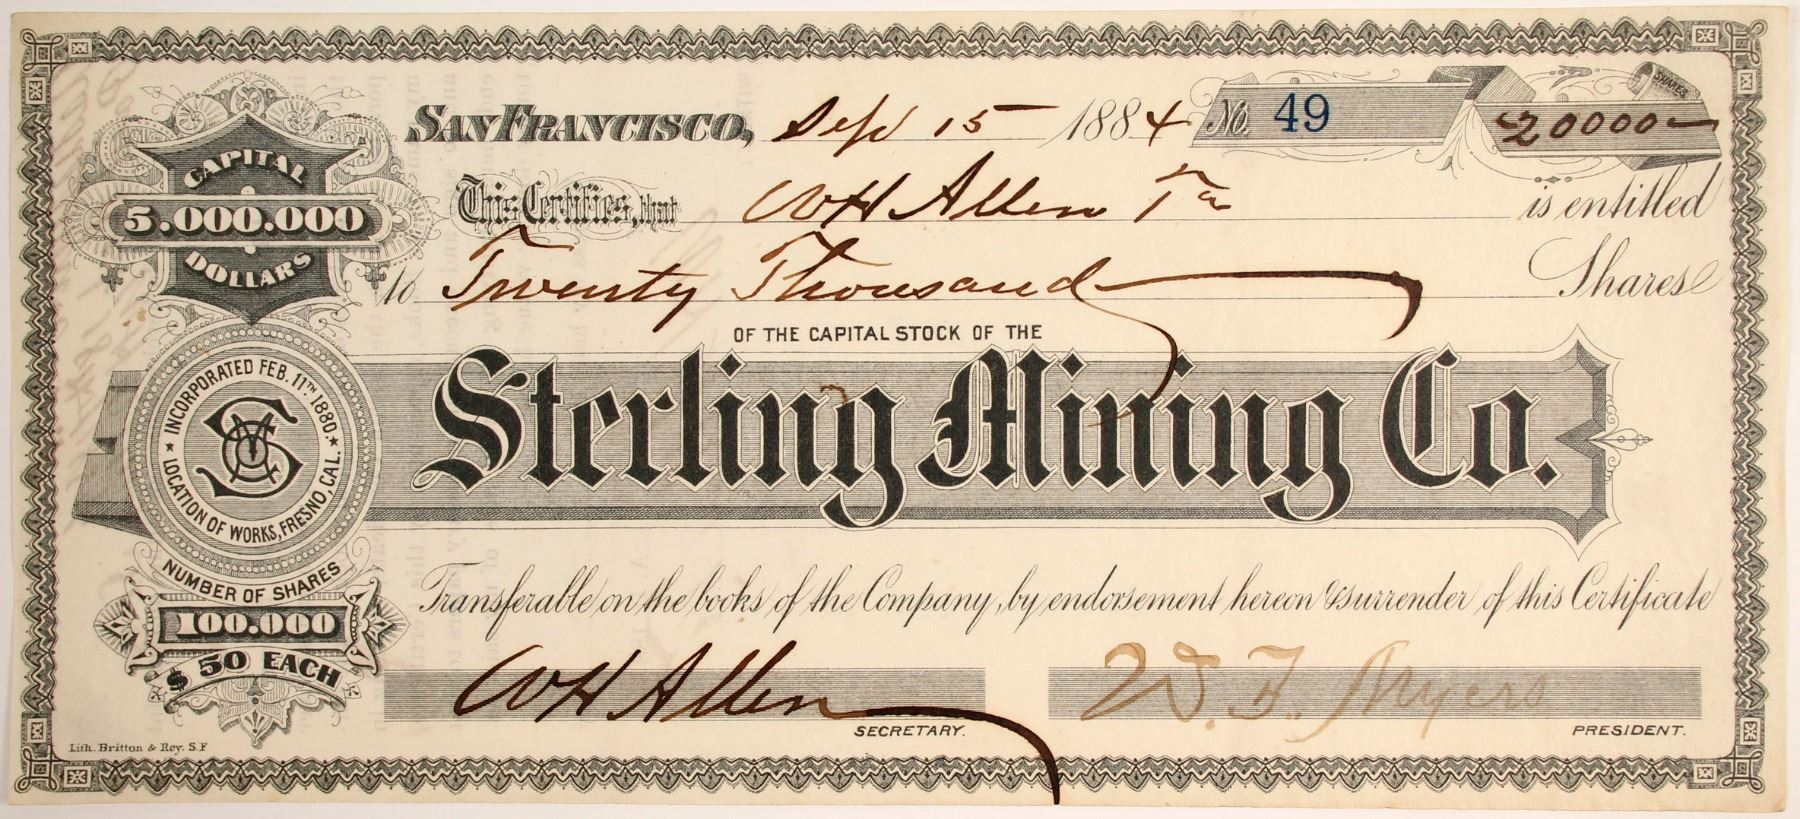 San Francisco, Sep 15 1884 No. 49 20000
SHARES
This Certifies, that W H Allen Tr is entitled
to Twenty Thousand Shares
OF THE CAPITAL STOCK OF THE
Sterling Mining Co.
Transferable on the books of the Company, by endorsement hereon & surrender of this Certificate
W H Allen
SECRETARY.
W. F. Myers
PRESIDENT.
CAPITAL
5.000.000
DOLLARS
INCORPORATED FEB. 11TH 1880.
LOCATION OF WORKS, FRESNO, CAL.
SMCo
NUMBER OF SHARES
100.000
$50 EACH
Lith. Britton & Rey. S.F